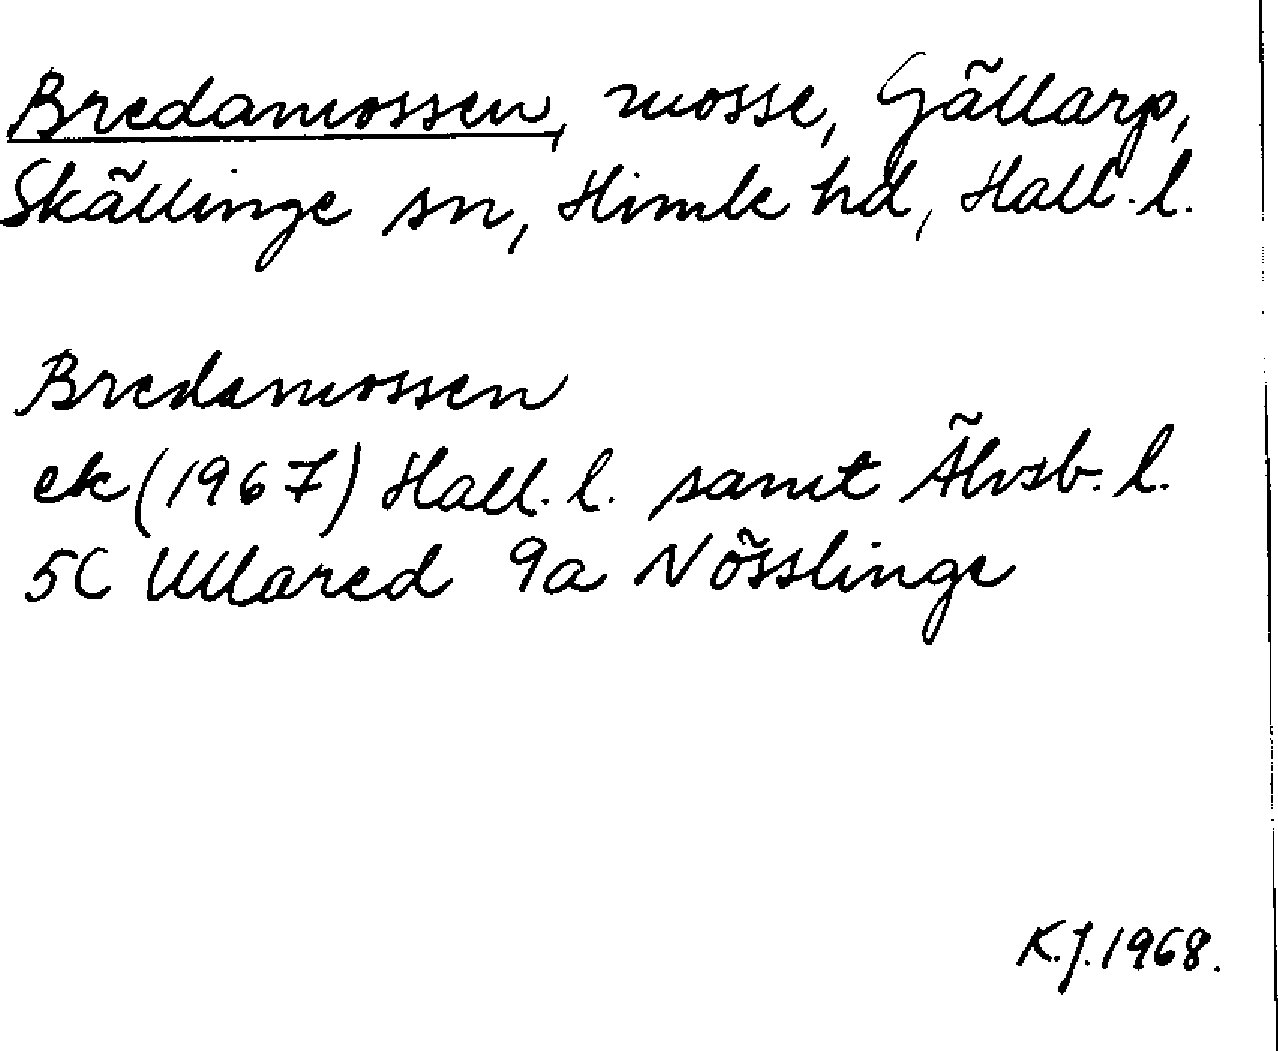 Bredamossen, mosse, Gällarp,
Skällinge sn, Himle hd, Hall. l.
Bredamossen
ek (1967) Hall. l. samt Älvsb. l.
5C Ullared 9a Nösslinge
K.J. 1968.